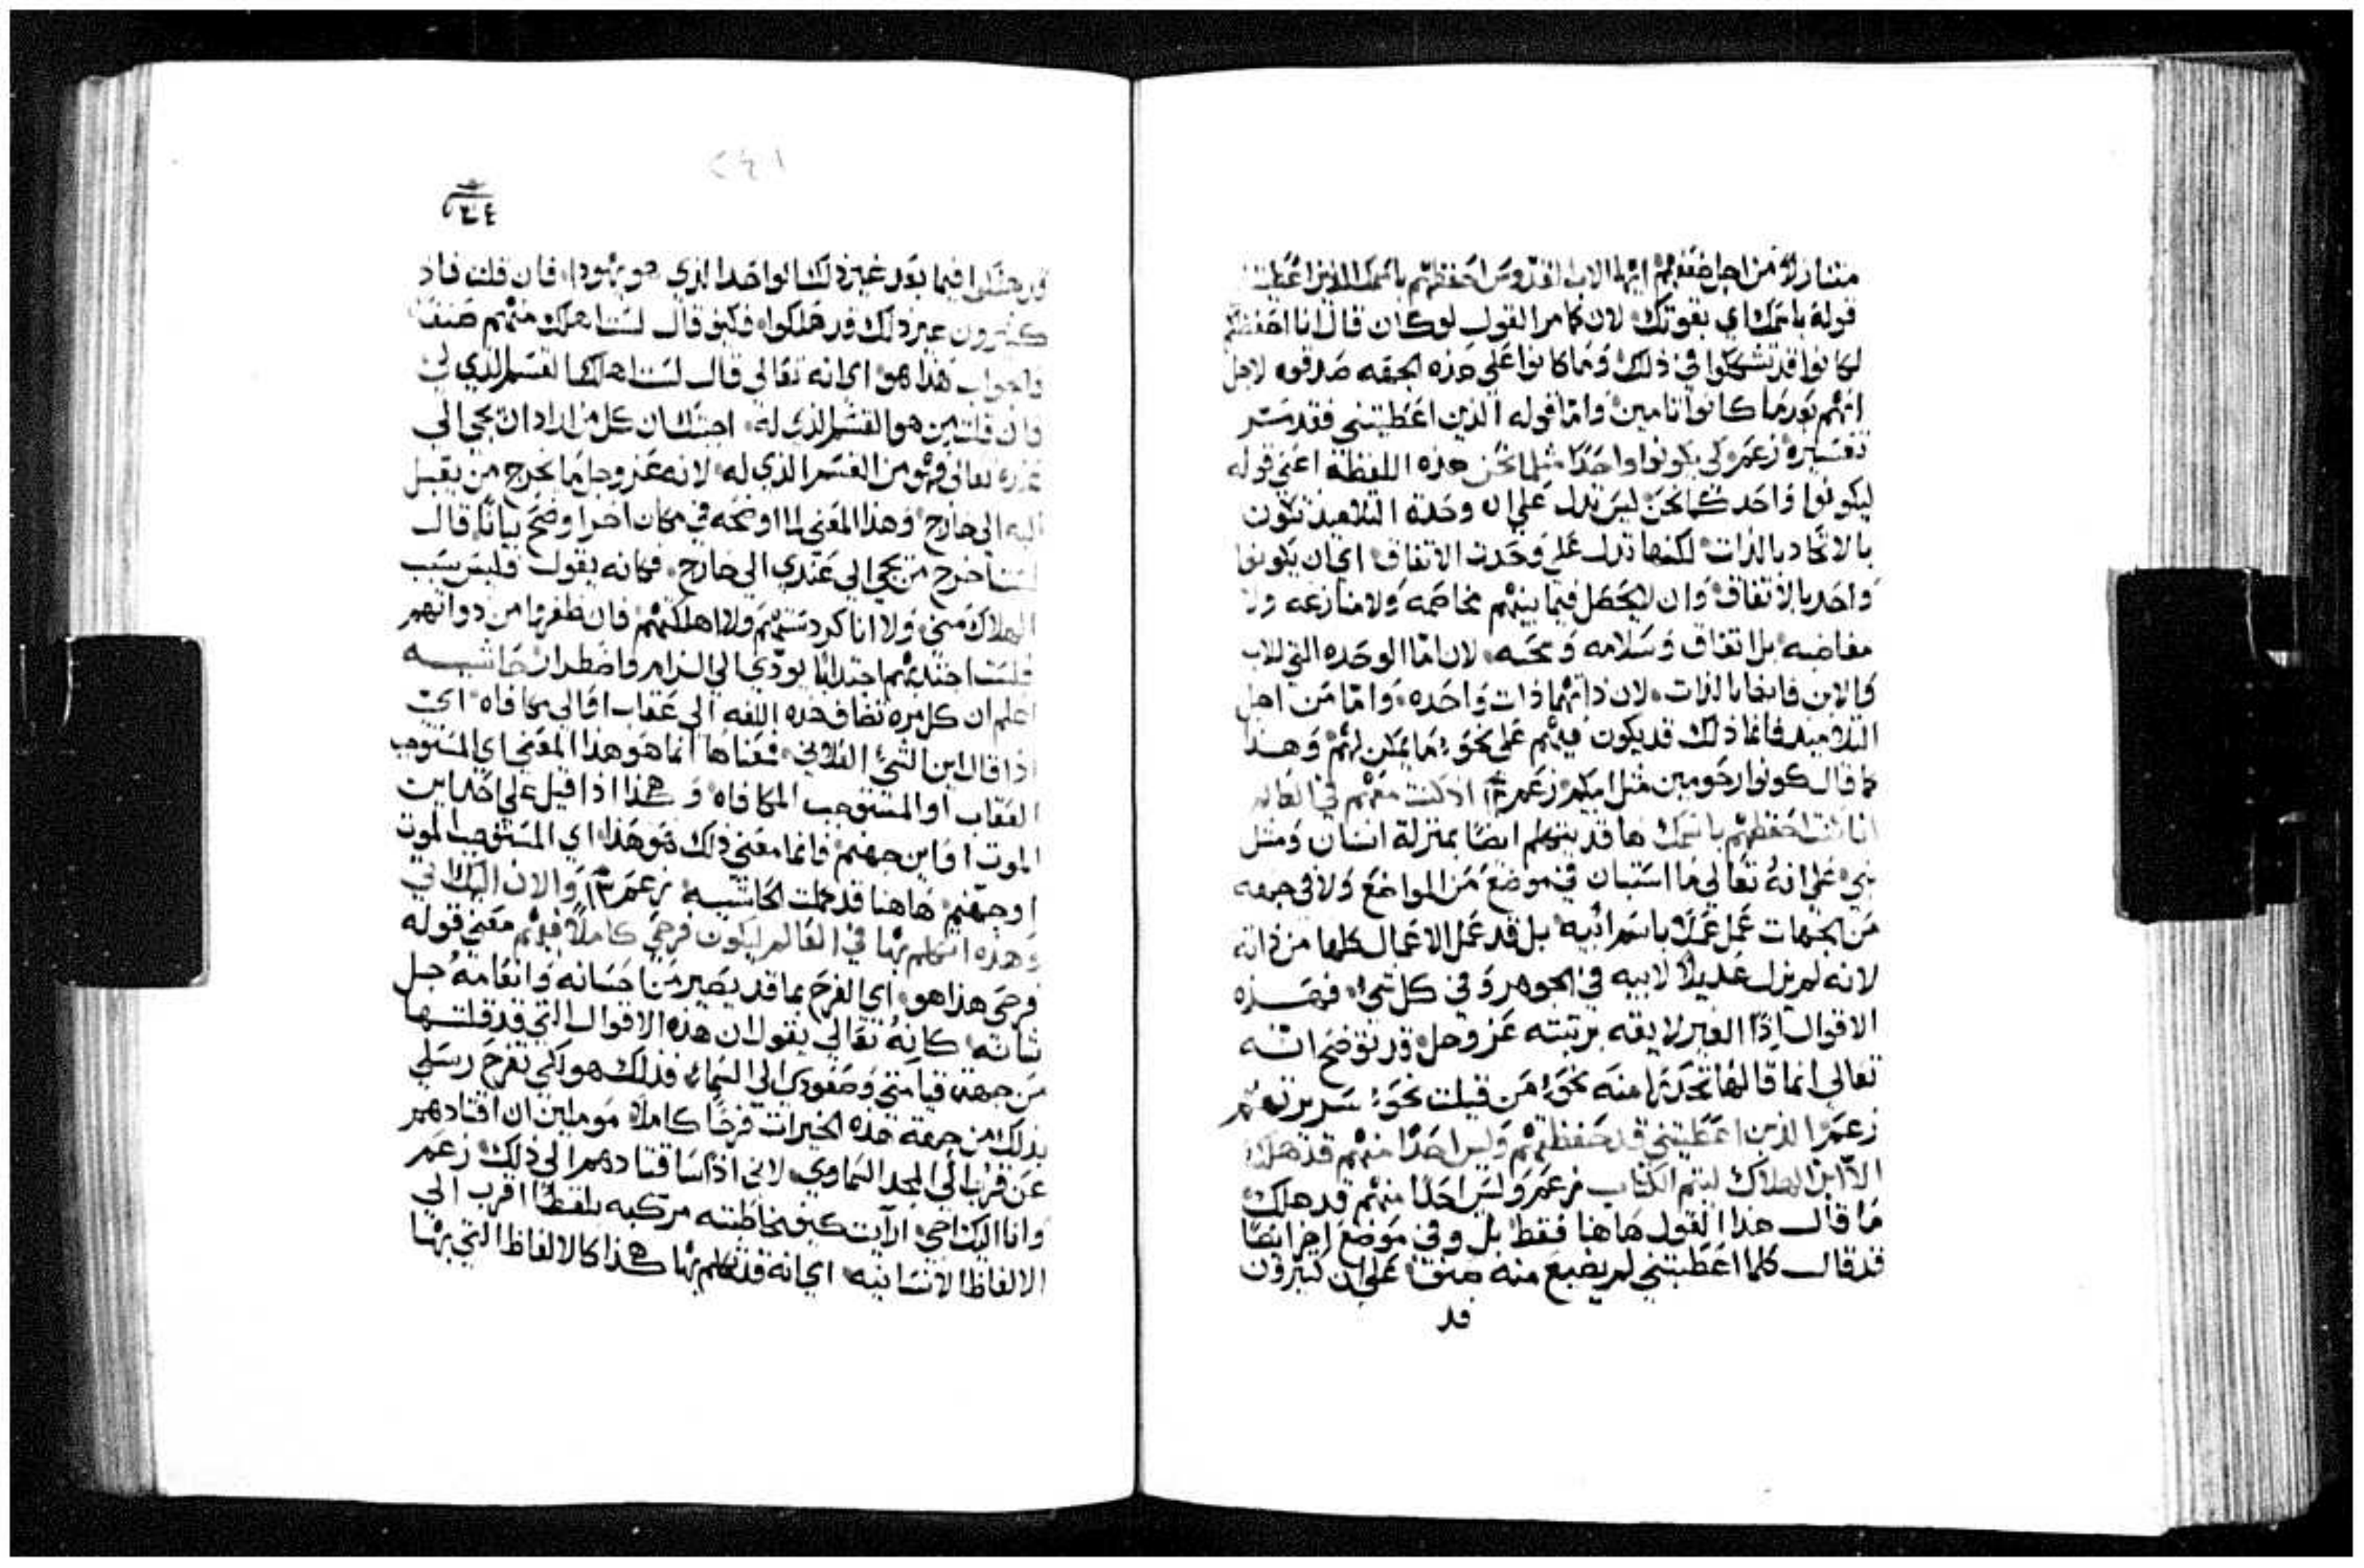 متنازلاً من اجل ضعفهم ايها الاب القدوس احفظهم باسمك الذين اعطيتني
قوله باسمك اي بقوتك لان كامر القول لوكان قال انا احفظهم
لكانوا قد تشككوا في ذلك وما كانوا علي هذه الجهه صدقوه لاجل
انهم بعد ما كانوا تامين واما قوله الذين اعطيتني فقد ستر
تفسيره زعم لكي يكونوا واحدًا مثلما نحن هذه اللفظة اعني قوله
ليكونوا واحد كما نحن ليس تدل علي ان وحدة التلاميذ تكون
بالاتحاد بالذات لكنها تدل علي وحدت الاتفاق اي ان يكونوا
واحد بالاتفاق وان لا يحصل فيما بينهم مخاصمه ولا منازعه ولا
مغاضبه بل اتفاق وسلامه ومحبه لان اما الوحده التي للاب
والابن فانها بالذات لان ذاتهما ذات واحده واما من اجل
التلاميذ فانما ذلك قد يكون فيهم علي نحو ما يمكن لهم وهذا
كما قال كونوا رحومين مثل ابيكم زعم ١٢ اذ كنت معهم في العالم
انا كنت احفظهم باسمك ها قد يتكلم ايضًا بمنزلة انسان ومثل
نبي علي انه تعالي ما استبان في موضع من المواضع ولا في جهه
من الجهات عمل عملاً باسم ابيه بل قد عمل الاعمال كلها من ذاته
لانه لم يزل عديلاً لابيه في الجوهر وفي كل شي فهذه
الاقوال اذًا الغير لايقه برتبته عز وجل قد توضح انه
تعالي انما قالها تحدرًا منه نحو من قيلت نحو سريرتهم
زعم الذين اعطيتني قد حفظتهم وليس احدًا منهم قد هلك
الا ابن الهلاك ليتم الكتاب زعم وليس احدًا منهم قد هلك
ما قال هذا القول هاهنا فقط بل وفي موضع اخر ايضًا
قد قال كلما اعطيتني لم يضيع منه صنف علي ان كثيرون
قد
٢٤١
قد هلكوا فيما بعد غير ذلك الواحد الذي هو يهودا فان قلت فاذ
كثيرون غير ذلك قد هلكوا فكيف قال لست اهلك منهم صنف
والجواب هذا هو اي انه تعالي قال لست اهلك القسم الذي لي
وان قلت من هو القسم الذي له اجبتك ان كل من اراد ان يجي الي
عنده تعالي فهو من القسم الذي له لانه عز وجل ما يخرج من يقبل
اليه الي خارج وهذا المعني لما اوضحه في مكان اخر اوضح بيانًا قال
لست اخرج من يجي الي عندي الي خارج فكانه يقول فليس سبب
الهلاك مني ولا انا كردستهم ولا اهلكتهم فان طفروا من ذواتهم
فلست اجتذبهم اجتذابًا يودي الي الزام واضطرار حاشيه
اعلم ان كل مره تضاف هذه اللفظه الي عقاب او الي مكافاه اي
اذا قال ابن الشي الفلاني فمعناها انما هو هذا المعني اي المستوجب
العقاب او المستوجب المكافاه وهكذا اذا قيل علي احد ابن
الموت او ابن جهنم فانما معني ذلك هو هذا اي المستوجب الموت
او جهنم هاهنا قد كملت الحاشيه زعم ١٣ والان اليك اتي
وهذه اتكلم بها في العالم ليكون فرحي كاملاً فيهم معني قوله
فرحي هذا هو اي الفرح بما قد يصير من احسانه وانعامه جل
شانه كانه تعالي يقول ان هذه الاقوال التي قد قلتها
من جهة قيامتي وصعودي الي السما فذلك هو لكي تفرح رسلي
بذلك من جهة هذه الخيرات فرحًا كاملاً موملين ان اقتادهم
عن قرب الي المجد السماوي لاني اذًا ساقتادهم الي ذلك زعم
وانا اليك اجي ارايت كيف مخاطبته مركبه بلفظًا اقرب الي
الالفاظ الانسانيه اي انه قد تكلم بها هكذا كالالفاظ التي بها